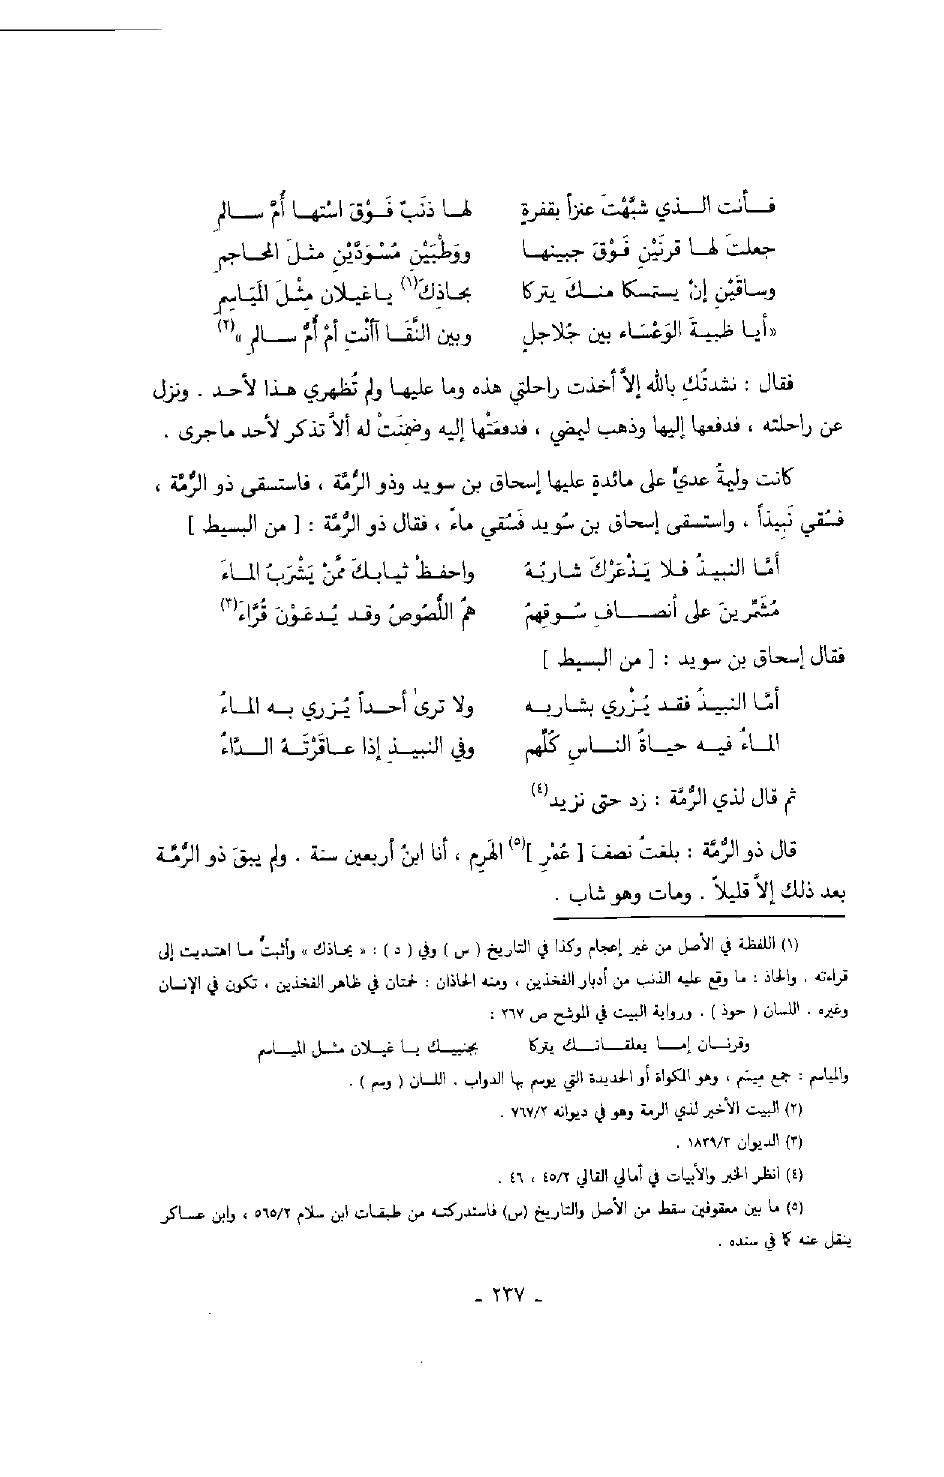 فأنت الذي شبَّهْتَ عنزاً بقفرةٍ لها ذَنَبٌ فَوْقَ اسْتها أُمَّ سالمِ
جعلتَ لها قرنَيْنِ فَوْقَ جبينها ووَطْبَيْنِ مُسْوَدَّيْنِ مثلَ المحاجمِ
وساقَيْنِ إنْ يستمكا منكَ يتركا بحاذِكَ(١) ياغيلان مِثْلَ المَيَاسِمِ
«أيا ظبيةَ الوَعْسَاء بين جُلاجلٍ وبين النَّقَا آأنْتِ أمْ أُمُّ سالمِ»(٢)
فقال : نشدتُكِ بالله إلاَّ أخذت راحلتي هذه وما عليها ولم تُظهري هذا لأحد . ونزل
عن راحلته ، فدفعها إليها وذهب ليمضي ، فدفعَتْها إليه وضمِنَتْ له ألاَّ تذكر لأحد ماجرى .
كانت وليمةُ عديٍّ على مائدةٍ عليها إسحاق بن سويد وذو الرُّمَّة ، فاستسقى ذو الرُّمَّة ،
فسُقي نَبيذاً ، واستسقى إسحاق بن سُويد فَسُقي ماءً ، فقال ذو الرُّمَّة : [ من البسيط ]
أمَّا النبيذُ فلا يَذْعَرْكَ شاربُهُ واحفظْ ثيابكَ ممَّنْ يَشْرَبُ الماءَ
مُشَمِّرينَ على أنصافِ سُوقِهِمُ همُ اللُّصُوصُ وقد يُدعَوْنَ قُرَّاءَ(٣)
فقال إسحاق بن سويد : [ من البسيط ]
أمَّا النبيذُ فقد يُزْري بشاربِه ولا ترىٰ أحداً يُزري به الماءُ
الماءُ فيه حياةُ الناسِ كلِّهِم وفي النبيذِ إذا عاقَرْتَهُ الدَّاءُ
ثم قال لذي الرُّمَّة : زد حتى نزيد(٤)
قال ذو الرُّمَّة : بلغتُ نصفَ [ عُمْرِ ](٥) الهَرِمِ ، أنا ابنُ أربعين سنة . ولم يبقَ ذو الرُّمَّة
بعد ذلك إلاَّ قليلاً . ومات وهو شاب .
(١) اللفظة في الأصل من غير إعجام وكذا في التاريخ ( س ) وفي ( د ) : « بحاذك » وأثبتُّ ما اهتديت إلى
قراءته . والحاذ : ما وقع عليه الذنب من أدبار الفخذين ، ومنه الحاذان : لحمتان في ظاهر الفخذين ، تكون في الإنسان
وغيره . اللسان ( حوذ ) . ورواية البيت في الموشح ص ٣٦٧ :
وقرنان إما يعلقانك يتركا بجنبيك يا غيلان مثل المياسم
والمياسم : جمع مِيسَم ، وهو المكواة أو الحديدة التي يوسم بها الدواب . اللسان ( وسم ) .
(٢) البيت الأخير لذي الرمة وهو في ديوانه ٧٦٧/٢ .
(٣) الديوان ١٨٣٩/٣ .
(٤) انظر الخبر والأبيات في أمالي القالي ٤٥/٢ ، ٤٦ .
(٥) ما بين معقوفين سقط من الأصل والتاريخ (س) فاستدركته من طبقات ابن سلام ٥٦٥/٢ ، وابن عساكر
ينقل عنه كما في سنده .
- ٢٣٧ -